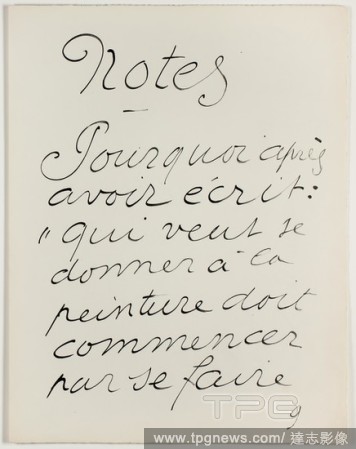 Notes
—
Pourquoi après
avoir écrit:
"qui veut se
donner à la
peinture doit
commencer
par se faire
9
TPG
www.tpgnews.com/達志影像